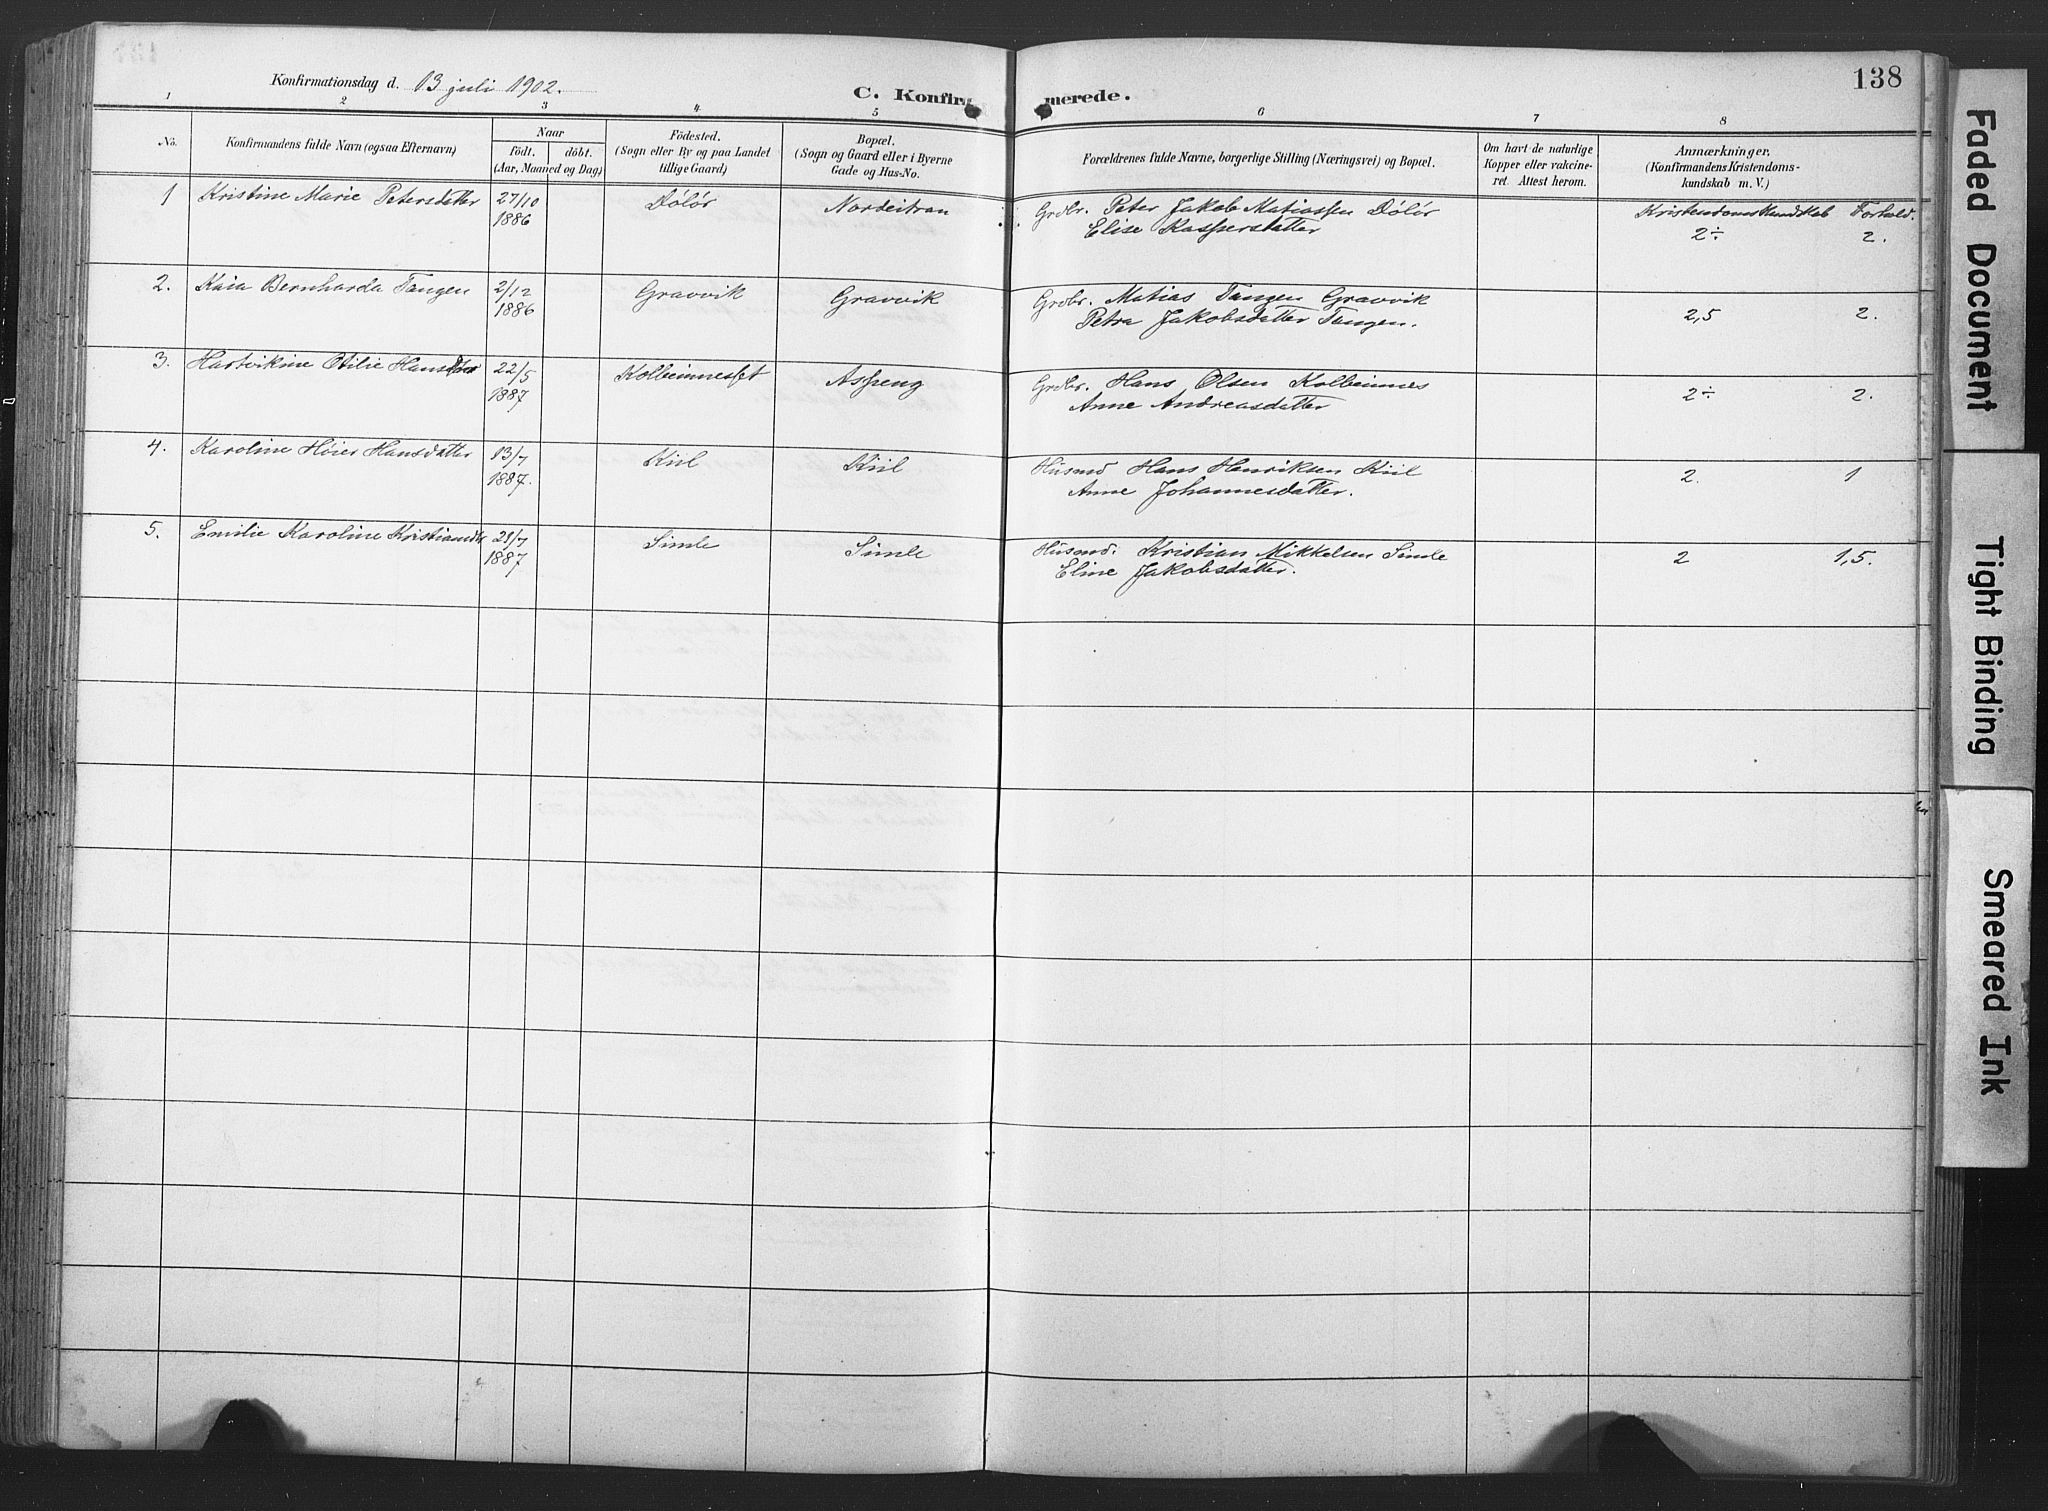 138
Konfirmationsdag d. 13 juli 1902.
C. Konfirmerede.
1 2 3 4 5 6 7 8
No.
Konfirmandens fulde Navn (ogsaa Efternavn)
Naar
födt. döbt.
(Aar, Maaned og Dag)
Födested.
(Sogn eller By og paa Landet
tillige Gaard)
Bopæl.
(Sogn og Gaard eller i Byerne
Gade og Hus-No.
Forældrenes fulde Navne, borgerlige Stilling (Næringsvei) og Bopæl.
Om havt de naturlige
Kopper eller vakcine-
ret. Attest herom.
Anmærkninger.
(Konfirmandens Kristendoms-
kundskab m. V.)
Kristendomskundskab Forhold.
1 Kristine Marie Petersdatter 27/10 1886 Dölör Grdbr. Peter Jakob Matiassen Dölör
Elise Kaspersdatter 2÷ 2.
2. Kaia Bernharda Tangen 2/12 1886 Gravvik Gravvik Grdbr. Matias Tangen Gravvik
Petra Jakobsdatter Tangen. 2,5 2.
3. Hartvikine Otilie 22/5 1887 Aspeng Grdbr. Hans Olsen Kolbeinnes
Anne Andreasdatter 2÷ 2.
4. Karoline Höier Hansdatter 13/7 1887. Kiil Kiil Husmd Hans Henriksen Kiil
Anne Johannesdatter. 2. 1
5. Emilie Karoline 1887 Simle Simle Husmd. Kristian Mikkelsen Simle
Eline Jakobsdatter. 2 1,5.
Faded Document
Tight Binding
Smeared Ink